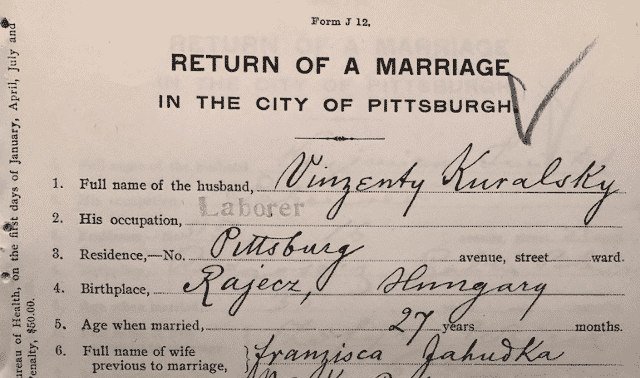 Form J 12.
RETURN OF A MARRIAGE
IN THE CITY OF PITTSBURGH.
1. Full name of the husband, Vinzenty Kuralsky
2. His occupation, Laborer
3. Residence,—No. Pittsburg avenue, street ward.
4. Birthplace, Rajecz, Hungary
5. Age when married, 27 years months.
6. Full name of wife
previous to marriage, } franzisca Jahudka
ureau of Health, on the first days of January, April, July and
enalty, $50.00.